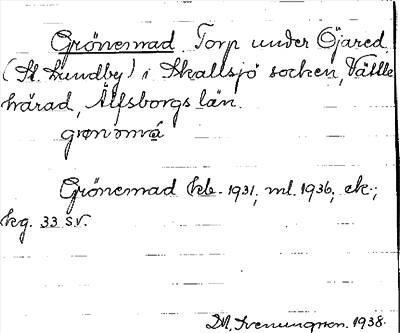 Grönemad. Torp under Öjared
(St. Lundby) i Skallsjö socken, Vättle
härad, Älfsborgs län.
grønəmá
Grönemad kb. 1931, ml. 1936, ek.,
kg. 33 S.V.
D.A. Svenungson. 1938.